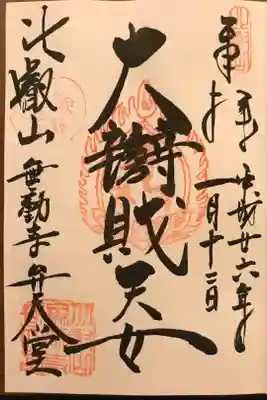 奉拝
平成廿六年
一月十二日
大辯財天女
比叡山
無動寺弁天堂